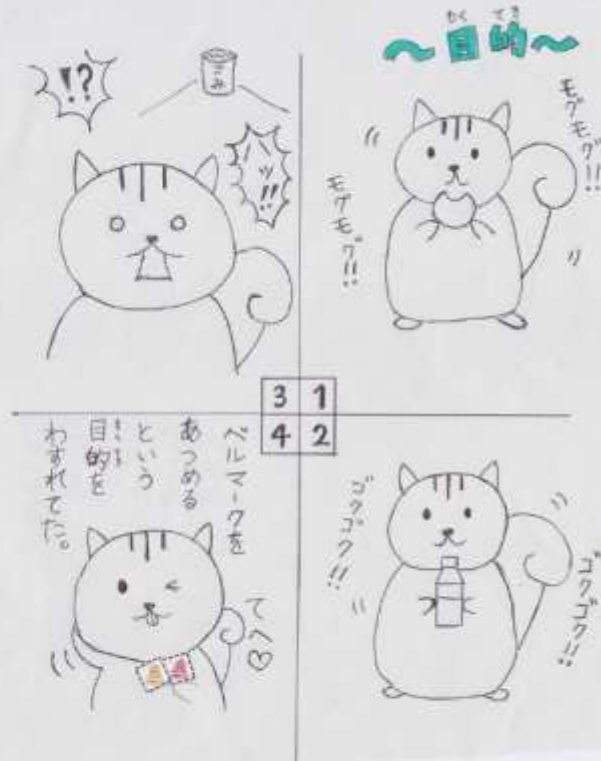 もく てき
～目的～
モグモグ!!
モグモグ!!
1
2
ゴクゴク!!
ゴクゴク!!
3
!?
ごみ
ハッ!!
4
ベルマークを
あつめる
という
目的を
わすれてた。
てへ♡